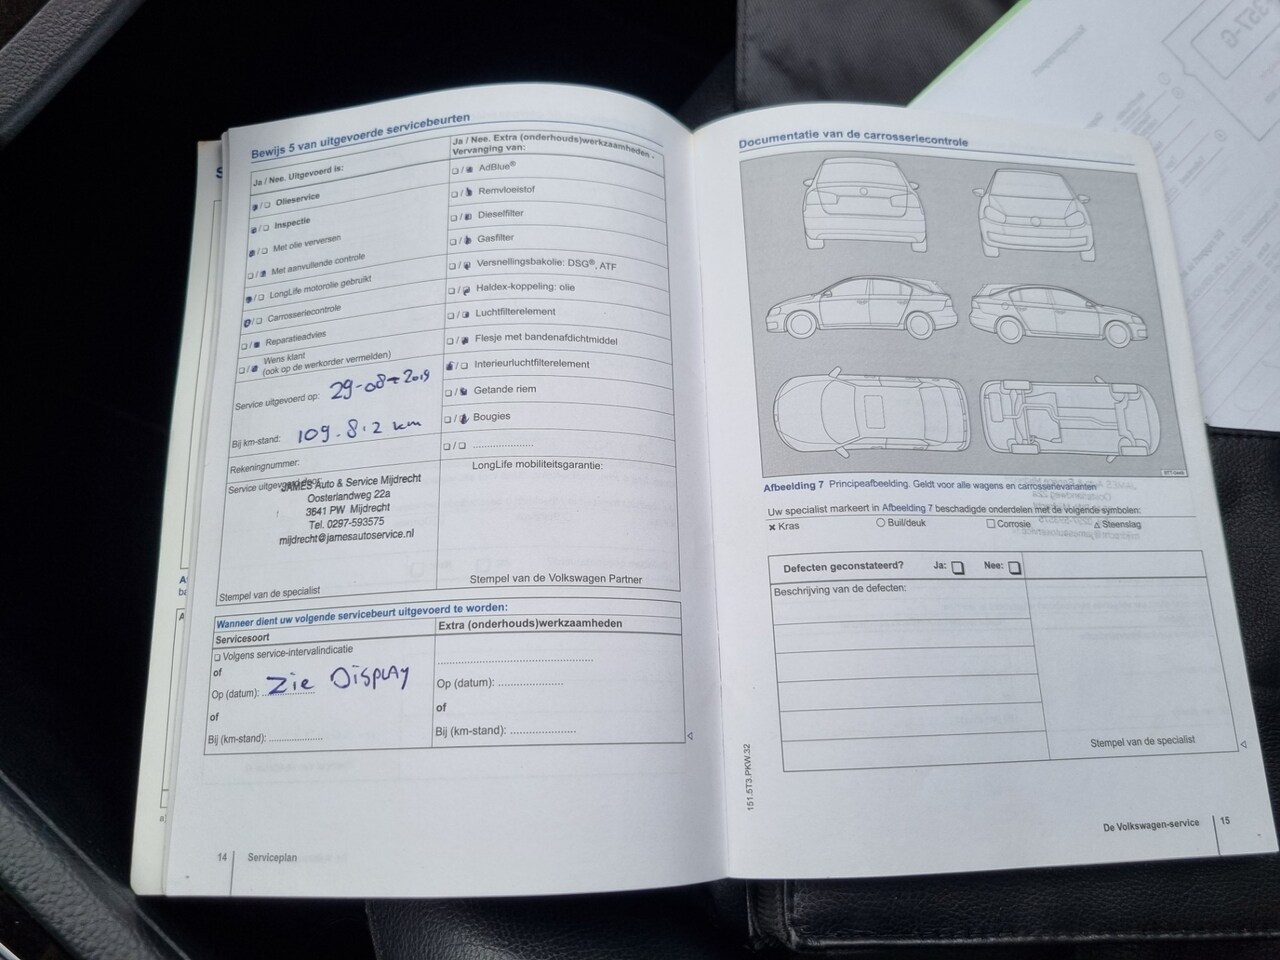 Bewijs 5 van uitgevoerde servicebeurten
Ja / Nee. Uitgevoerd is:
❏ / ❏ Olieservice
❏ / ❏ Inspectie
❏ / ❏ Met olie verversen
❏ / ❏ Met aanvullende controle
❏ / ❏ LongLife motorolie gebruikt
❏ / ❏ Carrosseriecontrole
❏ / ❏ Reparatieadvies
❏ / ❏ Wens klant
(ook op de werkorder vermelden)
Service uitgevoerd op: 29-08-2019
Bij km-stand: 109.812 km
Rekeningnummer:
Service uitgevoerd door:
JAMES Auto & Service Mijdrecht
Oosterlandweg 22a
3641 PW Mijdrecht
Tel. 0297-593575
mijdrecht@jamesautoservice.nl
Stempel van de specialist
Ja / Nee. Extra (onderhouds)werkzaamheden -
Vervanging van:
❏ / ❏ AdBlue®
❏ / ❏ Remvloeistof
❏ / ❏ Dieselfilter
❏ / ❏ Gasfilter
❏ / ❏ Versnellingsbakolie: DSG®, ATF
❏ / ❏ Haldex-koppeling: olie
❏ / ❏ Luchtfilterelement
❏ / ❏ Flesje met bandenafdichtmiddel
❏ / ❏ Interieurluchtfilterelement
❏ / ❏ Getande riem
❏ / ❏ Bougies
❏ / ❏ ....................
LongLife mobiliteitsgarantie:
Stempel van de Volkswagen Partner
Wanneer dient uw volgende servicebeurt uitgevoerd te worden:
Servicesoort
❏ Volgens service-intervalindicatie
of
Op (datum): Zie Display
of
Bij (km-stand): ..................
Extra (onderhouds)werkzaamheden
..................................................
Op (datum): .....................
of
Bij (km-stand): .....................
14 Serviceplan
Documentatie van de carrosseriecontrole
Afbeelding 7 Principeafbeelding. Geldt voor alle wagens en carrosserievarianten
Uw specialist markeert in Afbeelding 7 beschadigde onderdelen met de volgende symbolen:
✕ Kras ○ Buil/deuk ❏ Corrosie △ Steenslag
Defecten geconstateerd? Ja: ❏ Nee: ❏
Beschrijving van de defecten:
Stempel van de specialist
151.5T3.PKW.32
De Volkswagen-service 15